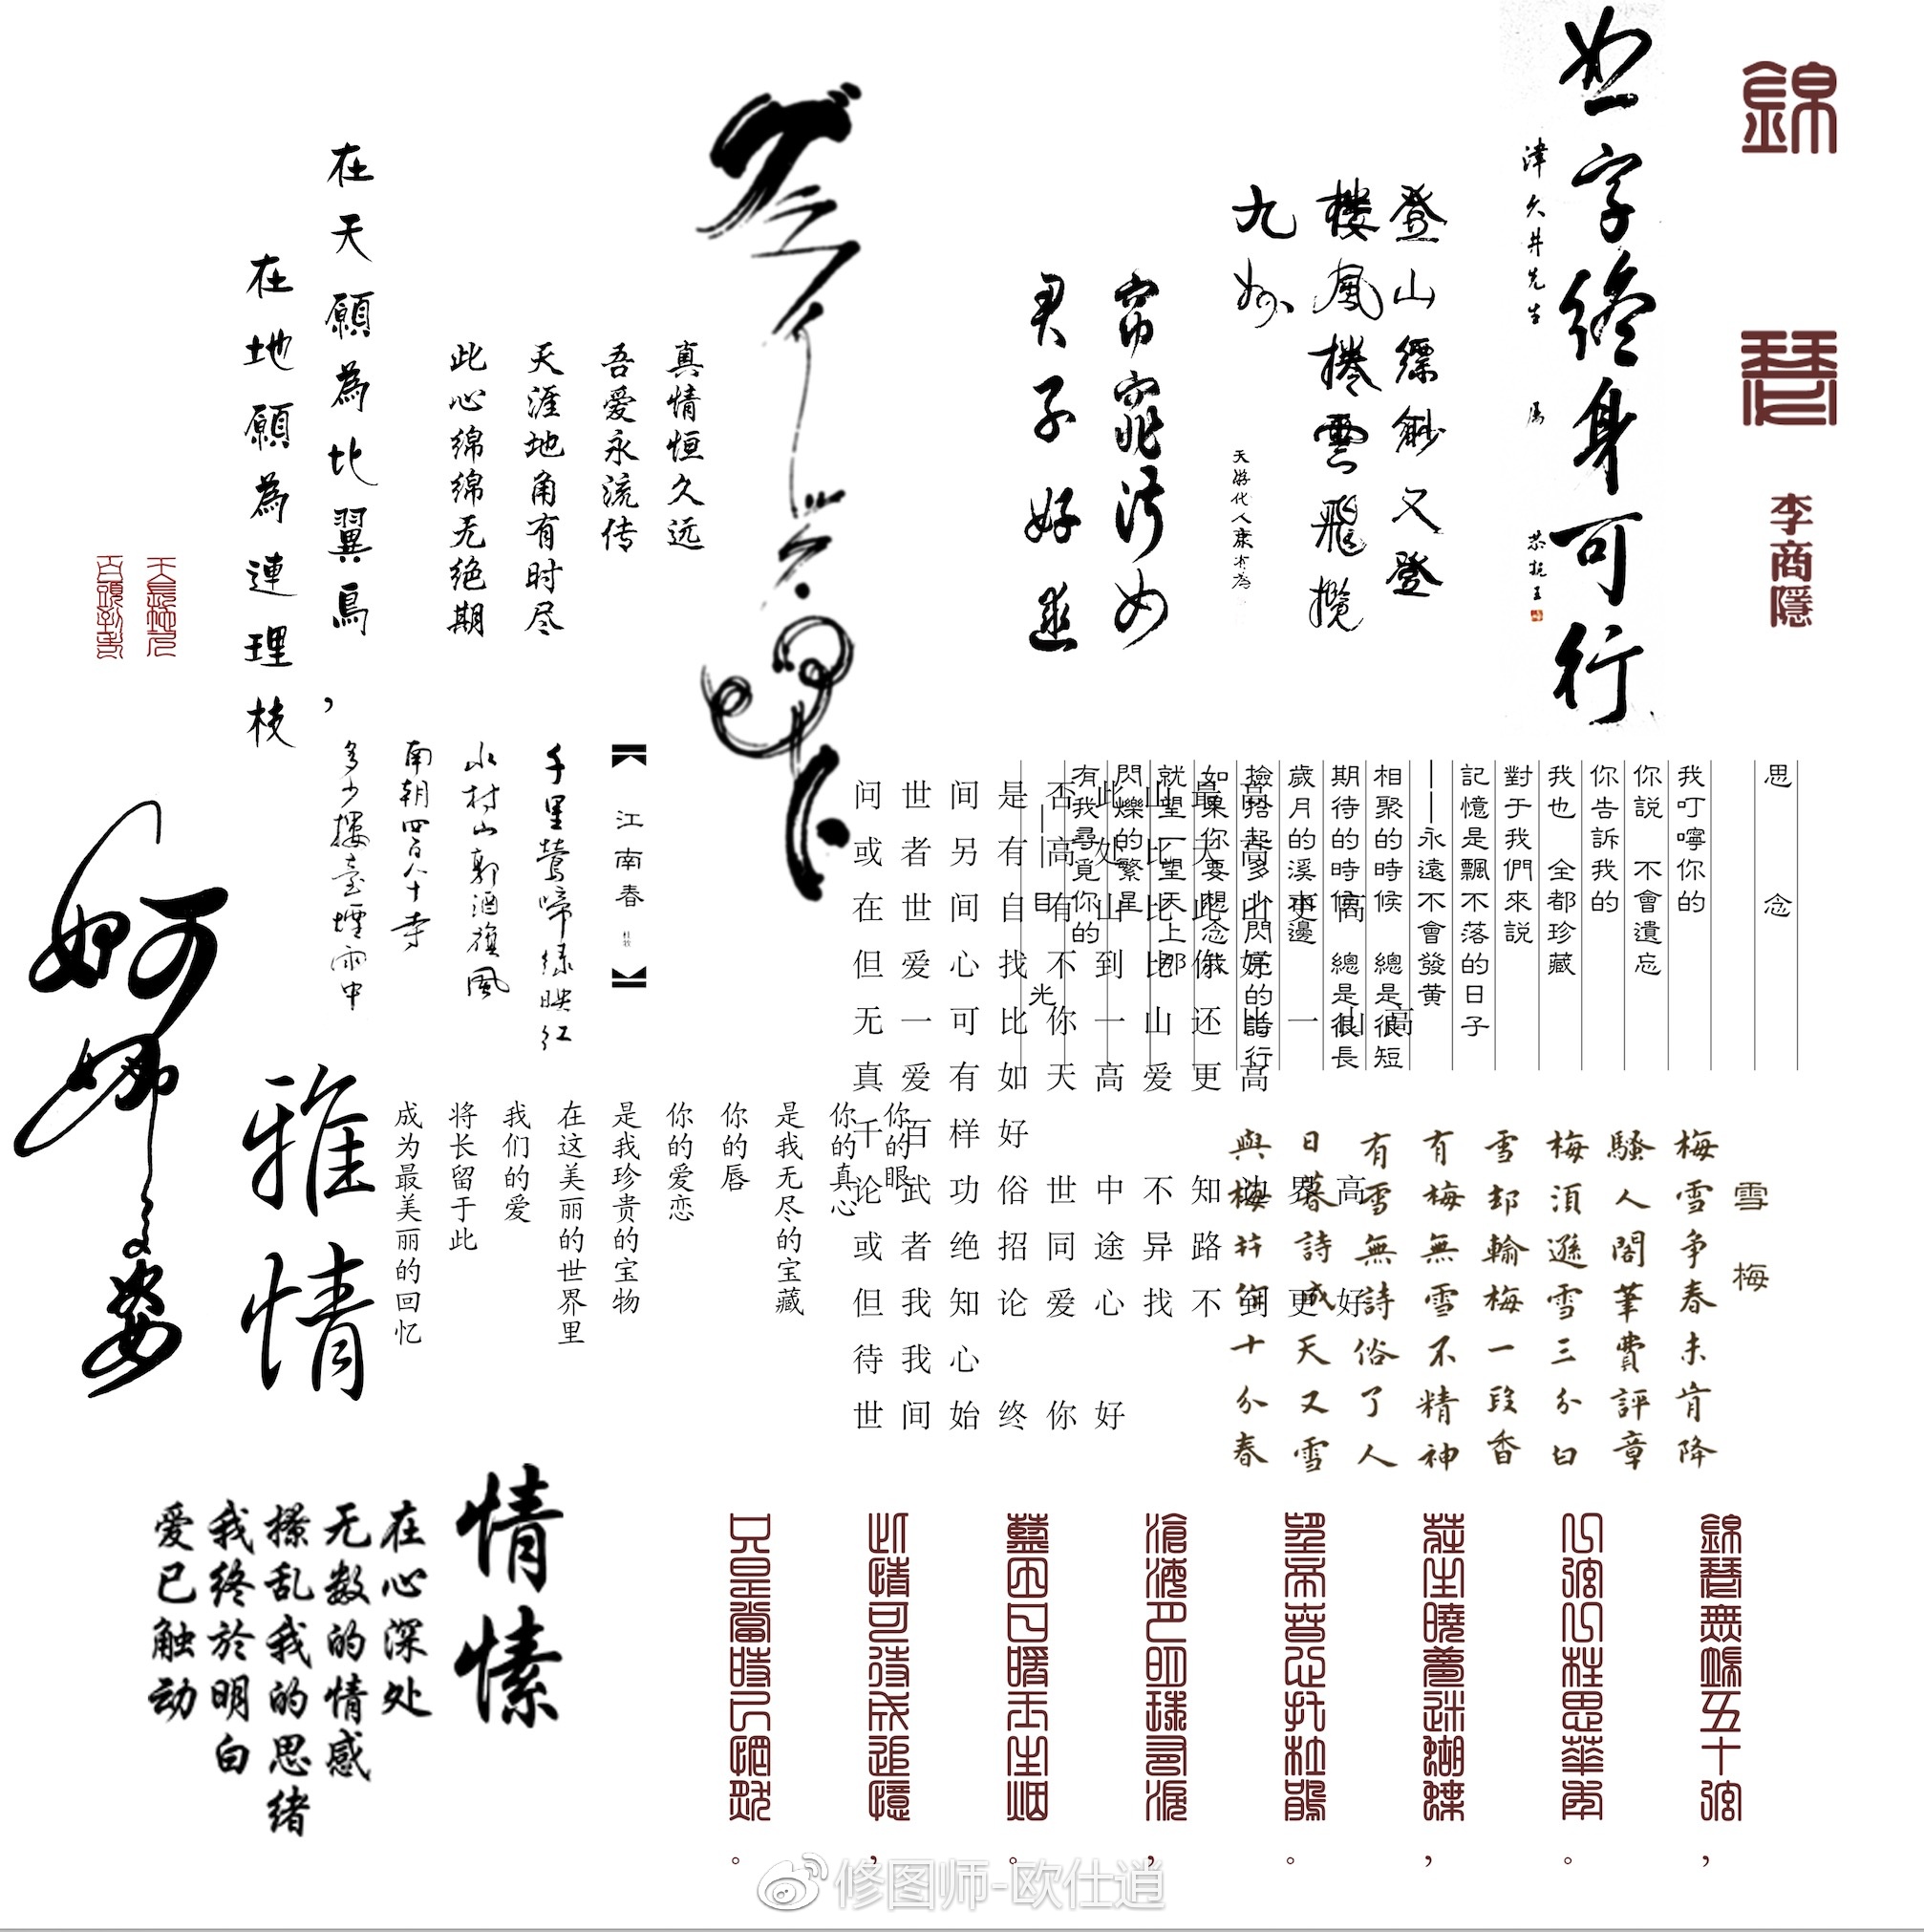 錦
瑟
李商隱
恕字終身可行
津久井先生 属
登山縹緲又登
樓風捲雲飛攬
九州
天游化人康有為
窈窕淑女
君子好逑
真情恒久远
吾爱永流传
天涯地角有时尽
此心绵绵无绝期
在天願為比翼鳥,
在地願為連理枝
天長地久
白頭到老
思念
我叮嚀你的
你説 不會遺忘
你告訴我的
我也 全都珍藏
對于我們來説
記憶是飄不落的日子
——永遠不會發黄
相聚的時候 總是很短
期待的時候 總是很長
歲月的溪水邊
撿拾起多少閃亮的詩行
如果你要想念我
就望一望天上那
閃爍的繁星
有我尋覓你的
——目 光
【江南春 杜牧】
千里鶯啼绿映红
水村山郭酒旗風
南朝四百八十寺
多少樓臺煙雨中
婀娜多姿
雅情
你的眼
你的真心
是我无尽的宝藏
你的唇
你的爱恋
是我珍贵的宝物
在这美丽的世界里
我们的爱
将长留于此
成为最美丽的回忆
问世间是否此山最高
或者另有高处比天高
在世间自有山比此山更高
但爱心找不到比你好
无一可比你一山还比一山高
真爱有如天高爱更高
千百样好
论武功俗世中不知边界高
或者绝招同途异路
但我知论爱心找不到更好
待我心
世间始终你好
雪梅
梅雪争春未肯降
騷人閣筆費評章
梅須遜雪三分白
雪却輸梅一段香
有梅無雪不精神
有雪無詩俗了人
日暮詩成天又雪
與梅并作十分春
情愫
在心深处
无数的情感
撩乱我的思绪
我终於明白
爱已触动
錦瑟無端五十弦,
一弦一柱思華年。
莊生曉夢迷蝴蝶,
望帝春心托杜鵑。
滄海月明珠有淚,
藍田日暖玉生烟。
此情可待成追憶,
只是當時已惘然。
修图师-欧仕逍